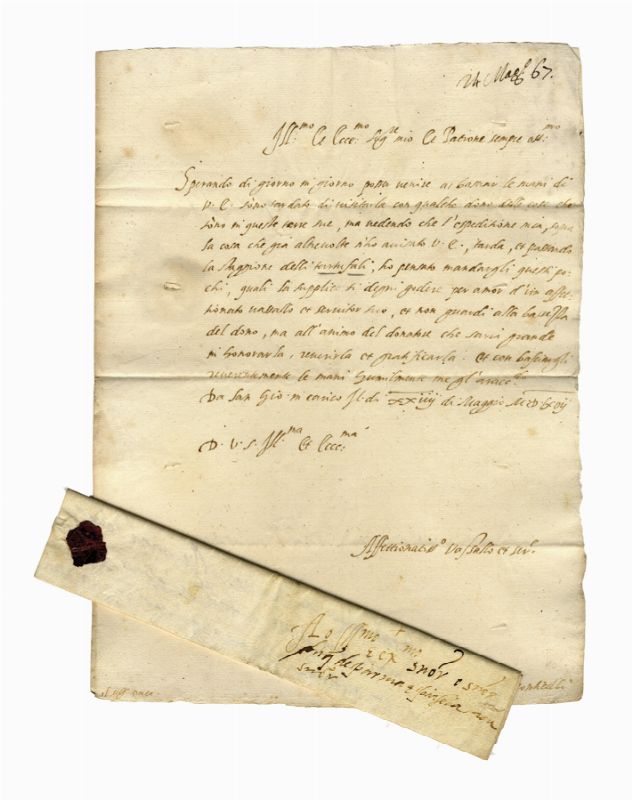 24 Magg.o 67.
Ill.mo et Ecce.mo Sig.re mio et Patrone sempre oss.mo
Sperando di giorno in giorno poter venire a basciar le mani di
V. E. sono tardato di visitarla con qualche dono delle cose che
sono in queste terre sue, ma vedendo che l'espeditione mia, sopra
la cosa che già altrevolte n'ho avisato V. E., tarda, et passando
la staggione delli tartufali, ho pensato mandargli questi po-
chi, quali la supplico si degni godere per amor d'un affet-
tionato vasallo et servitor suo, et non guardi alla bassezza
del dono, ma all'animo del donatore che saria grande
in honorarla, reverirla et gratificarla. et con basciargli
reverentemente le mani humilmente me gl'
Da San Gio: in il dì XXiiij di Maggio MDLXvij
D. V. S. Ill.ma et Ecce.ma
Affectionatis.o Vassallo et ser.re
Allo Ill.mo et
Ecc.mo Snor e snor
de parma e
snor